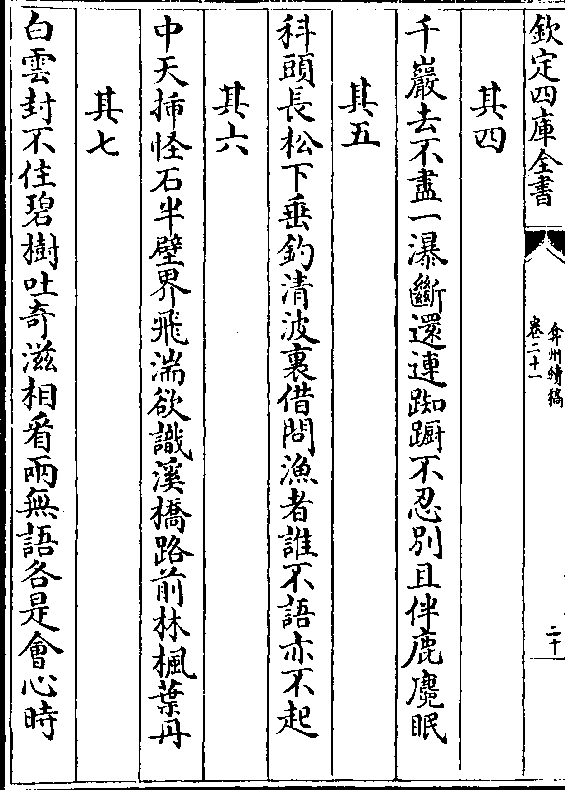 欽定四庫全書
弇州續稿
卷二十一
二十
其四
千巖去不盡一瀑斷還連踟蹰不忍別且伴鹿麛眠
其五
科頭長松下垂釣清波裏借問漁者誰不語亦不起
其六
中天揷怪石半壁界飛湍欲識溪橋路前林楓葉丹
其七
白雲封不住碧樹吐奇滋相看兩無語各是會心時